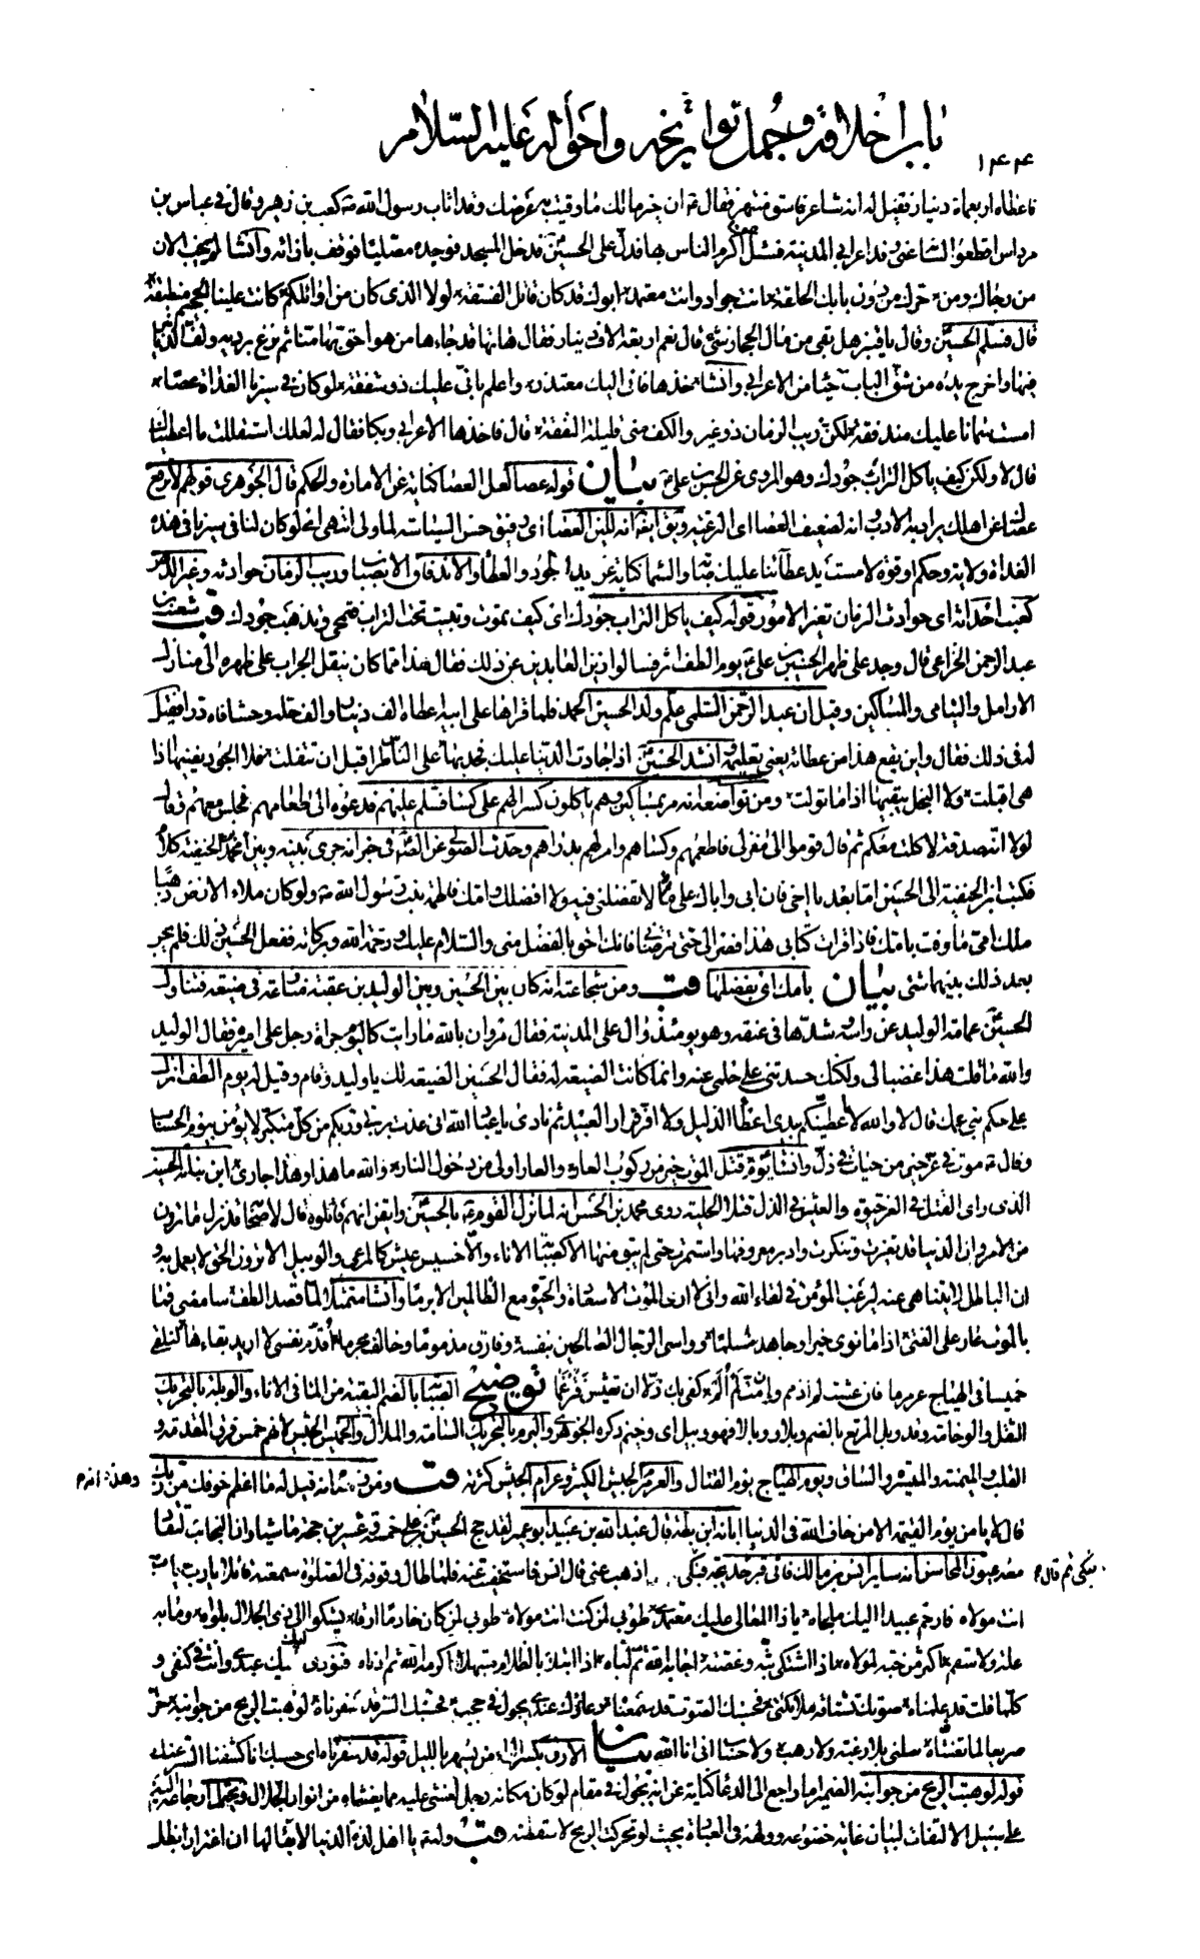 باب اخلاقه وجمل تواريخه واحواله عليه السلام
١٤٤
فاعطاه اربعمأة دينار فقيل له انه شاعر فاسق منتهر فقال ع ان خير مالك ما وقيت به عرضك وقد اثاب رسول الله ص كعب بن زهير وقال في عباس بن
مرداس اقطعوا لسانه عني وفد اعرابي المدينة فسئل عن اكرم الناس بها فدل على الحسين ع فدخل المسجد فوجده مصليا فوقف بازائه وانشا لم يخب الان
من رجاك ومن حرك من دون بابك الحلقة انت جواد وانت معتمد ابوك قد كان قاتل الفسقة لولا الذي كان من اوائلكم كانت علينا الجحيم منطبقة
قال فسلم الحسين ع وقال يا قنبر هل بقي من مال الحجاز شئ قال نعم اربعة الاف دينار فقال هاتها قد جاءها من هو احق بها منا ثم نزع برديه ولف الدنانير
فيها واخرج يده من شق الباب حياء من الاعرابي وانشا خذها فاني اليك معتذر واعلم باني عليك ذو شفقة لو كان في سيرنا الغداة عصا
امست سمانا عليك مندفقة لكن ريب الزمان ذو غير والكف مني قليلة النفقة قال فاخذها الاعرابي وبكا فقال له لعلك استقللت ما اعطيناك
قال لا ولكن كيف ياكل التراب جودك وهو المروي عن الحسن بن علي ع بيان قوله عصا لعل العصا كناية عن الامارة والحكم قال الجوهري قولهم لا ترفع
عصاك عن اهلك يراد به الادب وانه لضعيف العصا اي الرعية ويق ايضا انه للين العصا اي رفيق حسن السياسة لما ولي انتهى اي لو كان لنا في سيرنا في هذه
الغداة ولاية وحكم او قوة لامست يد عطائنا عليك صابة والسماء كناية عن يد الجود والعطاء والاندفاق الانصباب وريب الزمان حوادثه وغير الدهر
كعنب احداثه اي حوادث الزمان تغير الامور قوله كيف ياكل التراب جودك اي كيف تموت وتبيت تحت التراب فتمحي ويذهب جودك قب شعيب بن
عبد الرحمن الخزاعي قال وجد على ظهر الحسين بن علي ع يوم الطف اثر فسالوا زين العابدين عن ذلك فقال هذا مما كان ينقل الجراب على ظهره الى منازل
الارامل واليتامى والمساكين وقيل ان عبد الرحمن السلمي علم ولد الحسين الحمد فلما قراها على ابيه اعطاه الف دينار والف حلة وحشا فاه درا فقيل
له في ذلك فقال واين يقع هذا من عطائه يعني تعليمه وانشد الحسين ع اذا جادت الدنيا عليك فجد بها على الناس طرا قبل ان تتفلت فلا الجود يفنيها اذا
هي اقبلت ولا البخل يبقيها اذا ما تولت ومن تواضعه انه مر بمساكين وهم ياكلون كسرا لهم على كساء فسلم عليهم فدعوه الى طعامهم فجلس معهم وقال
لولا انه صدقة لاكلت معكم ثم قال قوموا الى منزلي فاطعمهم وكساهم وامر لهم بدراهم وحدث الصولي عن الصادق في خبر انه جرى بينه وبين محمد بن الحنفية كلام
فكتب ابن الحنفية الى الحسين اما بعد يا اخي فان ابي واباك علي ع لا تفضلني فيه ولا افضلك وامك فاطمة بنت رسول الله ص ولو كان ملاء الارض ذهبا
ملك امي ما وفت بامك فاذا قرات كتابي هذا فصر الي حتى ترضاني فانك احق بالفضل مني والسلام عليك ورحمة الله وبركاته ففعل الحسين ذلك فلم يجر
بعد ذلك بينهما شئ بيان بامك اي بفضلها قب ومن شجاعته انه كان بين الحسين وبين الوليد بن عقبة منازعة في ضيعة فتناول
الحسين ع عمامة الوليد عن راسه وشدها في عنقه وهو يومئذ وال على المدينة فقال مروان بالله ما رايت كاليوم جراة رجل على اميره فقال الوليد
والله ما قلت هذا غضبا لي ولكنك حسدتني على حلمي عنه وانما كانت الضيعة له فقال الحسين الضيعة لك يا وليد وقام وقيل له يوم الطف انزل
على حكم بني عمك قال لا والله لا اعطيكم بيدي اعطاء الذليل ولا افر فرار العبيد ثم نادى يا عباد الله اني عذت بربي وربكم من كل متكبر لا يؤمن بيوم الحساب
وقال ع موت في عز خير من حياة في ذل وانشا ع يوم قتل الموت خير من ركوب العار والعار اولى من دخول النار والله ما هذا وهذا جاري ابن نباتة الحسين
الذي راى القتل في العز حيوة والعيش في الذل قتلا الحلية روى محمد بن الحسن انه لما نزل القوم بالحسين ع وايقن انهم قاتلوه قال لاصحابه قد نزل ما ترون
من الامر وان الدنيا قد تغيرت وتنكرت وادبر معروفها واستمرت حتى لم يبق منها الا كصبابة الاناء والا خسيس عيش كالمرعى الوبيل الا ترون الحق لا يعمل به و
ان الباطل لا يتناهى عنه ليرغب المؤمن في لقاء الله واني لا ارى الموت الا سعادة والحيوة مع الظالمين الا برما وانشا متمثلا لما قصد الطف سامضي فما
بالموت عار على الفتى اذا ما نوى خيرا وجاهد مسلما وواسى الرجال الصالحين بنفسه وفارق مذموما وخالف مجرما اقدم نفسي لا اريد بقاءها لنلقى
خميسا في الهياج عرمرما فان عشت لم اذمم وان مت لم الم كفى بك ذلا ان تعيش فترغما توضيح الصبابة بالضم البقية من الماء في الاناء والوبلة بالتحريك
الثقل والوخامة وقد وبل المرتع بالضم وبلا ووبالا فهو وبيل اي وخيم ذكره الجوهري والبرم بالتحريك السامة والملال والخميس الجيش لانهم خمس فرق المقدمة و
القلب والميمنة والميسرة والساق ويوم الهياج يوم القتال والعرمرم الجيش الكثير وعرام الجيش كثرته قب ومن زهده انه قيل له ما اعظم خوفك من ربك
وهذه: انه م
قال لا يامن يوم القيمة الا من خاف الله في الدنيا ابانة ابن بطة قال عبد الله بن عبيد ابو عمير لقد حج الحسين بن علي ع خمسة وعشرين حجة ماشيا وان النجائب لتقاد
معه عيون المحاسن انه ساير انس بن مالك فاتى قبر خديجة فبكى اذهب عني قال انس فاستخفيت عنه فلما طال وقوفه في الصلوة سمعته قائلا يا رب يا رب
فبكى ثم قال
انت مولاه فارحم عبيدا اليك ملجاه يا ذا المعالي عليك معتمدي طوبى لمن كنت انت مولاه طوبى لمن كان خادما ارقا يشكو الى ذي الجلال بلواه وما به
علة ولا سقم اكثر من حبه لمولاه اذا اشتكى بثه وغصته اجابه الله ثم لباه اذا ابتلى بالظلام مبتهلا اكرمه الله ثم ادناه فنودي لبيك عبدي وانت في كنفي و
كلما قلت قد علمناه صوتك تشتاقه ملائكتي فحسبك الصوت قد سمعناه دعاك عندي يجول في حجب فحسبك الستر قد سفرناه لو هبت الريح من جوانبه خر
صريعا لما تغشاه سلني بلا رغبة ولا رهب ولا حساب اني انا الله بيان الارق بكسر الراء من يسهر بالليل قوله قد سفرناه اي حسبك انا كشفنا الستر عنك
قوله لو هبت الريح من جوانبه الضمير اما راجع الى الدعاء كناية عن انه يجول في مقام لو كان مكانه رجل لغشي عليه مما يغشاه من انوار الجلال ويحتمل ارجاعه اليه ع
على سبيل الالتفات لبيان غاية خضوعه وولهه في العبادة بحيث لو تحركت الريح لاسقطته قب وله ع يا اهل لذة الدنيا لا بقاء لها ان اغترارا بظل